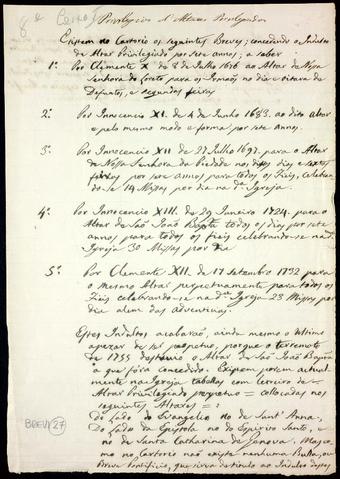 8º
Privilegios d'Altares Privilegiados
Existem no Cartorio os seguintes Breves; concedendo o Indulto de
Altar Privilegiado por sete annos; a saber
1º. Por Clemente X. de 8 de Julho 1676 ao Altar de Nossa
Senhora do Loreto para os Irmaõs no dia e oitava de
Defuntos, e segundas feiras
2º. Por Innocencio XI. de 4 de Junho 1683. ao dito altar
e pelo mesmo modo e forma por sete annos.
3º. Por Innocencio XII de 27 Julho 1697. para o Altar
de Nossa Senhora da Piedade nos dias e sextas
feiras por sete annos para todos os Fieis, celebran-
do-se 14 Missas por dia na da Igreja.
4º. Por Innocencio XIII. de 29 Janeiro 1724. para o
Altar de São João Bapta todos os dias por sete
annos para todos os fieis celebrando-se na da
Igreja 30 Missas por dia
5º. Por Clemente XII. de 17 Setembro 1732 para
o mesmo Altar perpetuamente para todos os
Fieis celebrando-se na da Igreja 23 Missas por
dia alem das adventicias.
Estes Indultos acabaraõ, ainda mesmo o ultimo
apezar de ser perpetuo, porque o terremoto
de 1755 destruio o Altar de São João Bapta
a que fôra concedido. Existem porem actual-
mente na Igreja taboas com Letreiro de =
Altar Privilegiado perpetuo = collocadas nos
seguintes Altares = :
Do lado do Evangelio no de Sant'Anna,
Do lado da Epistola no do Espirito Santo, e
no de Santa Catharina de Genova. Mas co-
mo no Cartorio não existe nenhuma Bulla, ou
Breve Pontificio, que sirva de titulo ao Indulto destes
BREVI 27